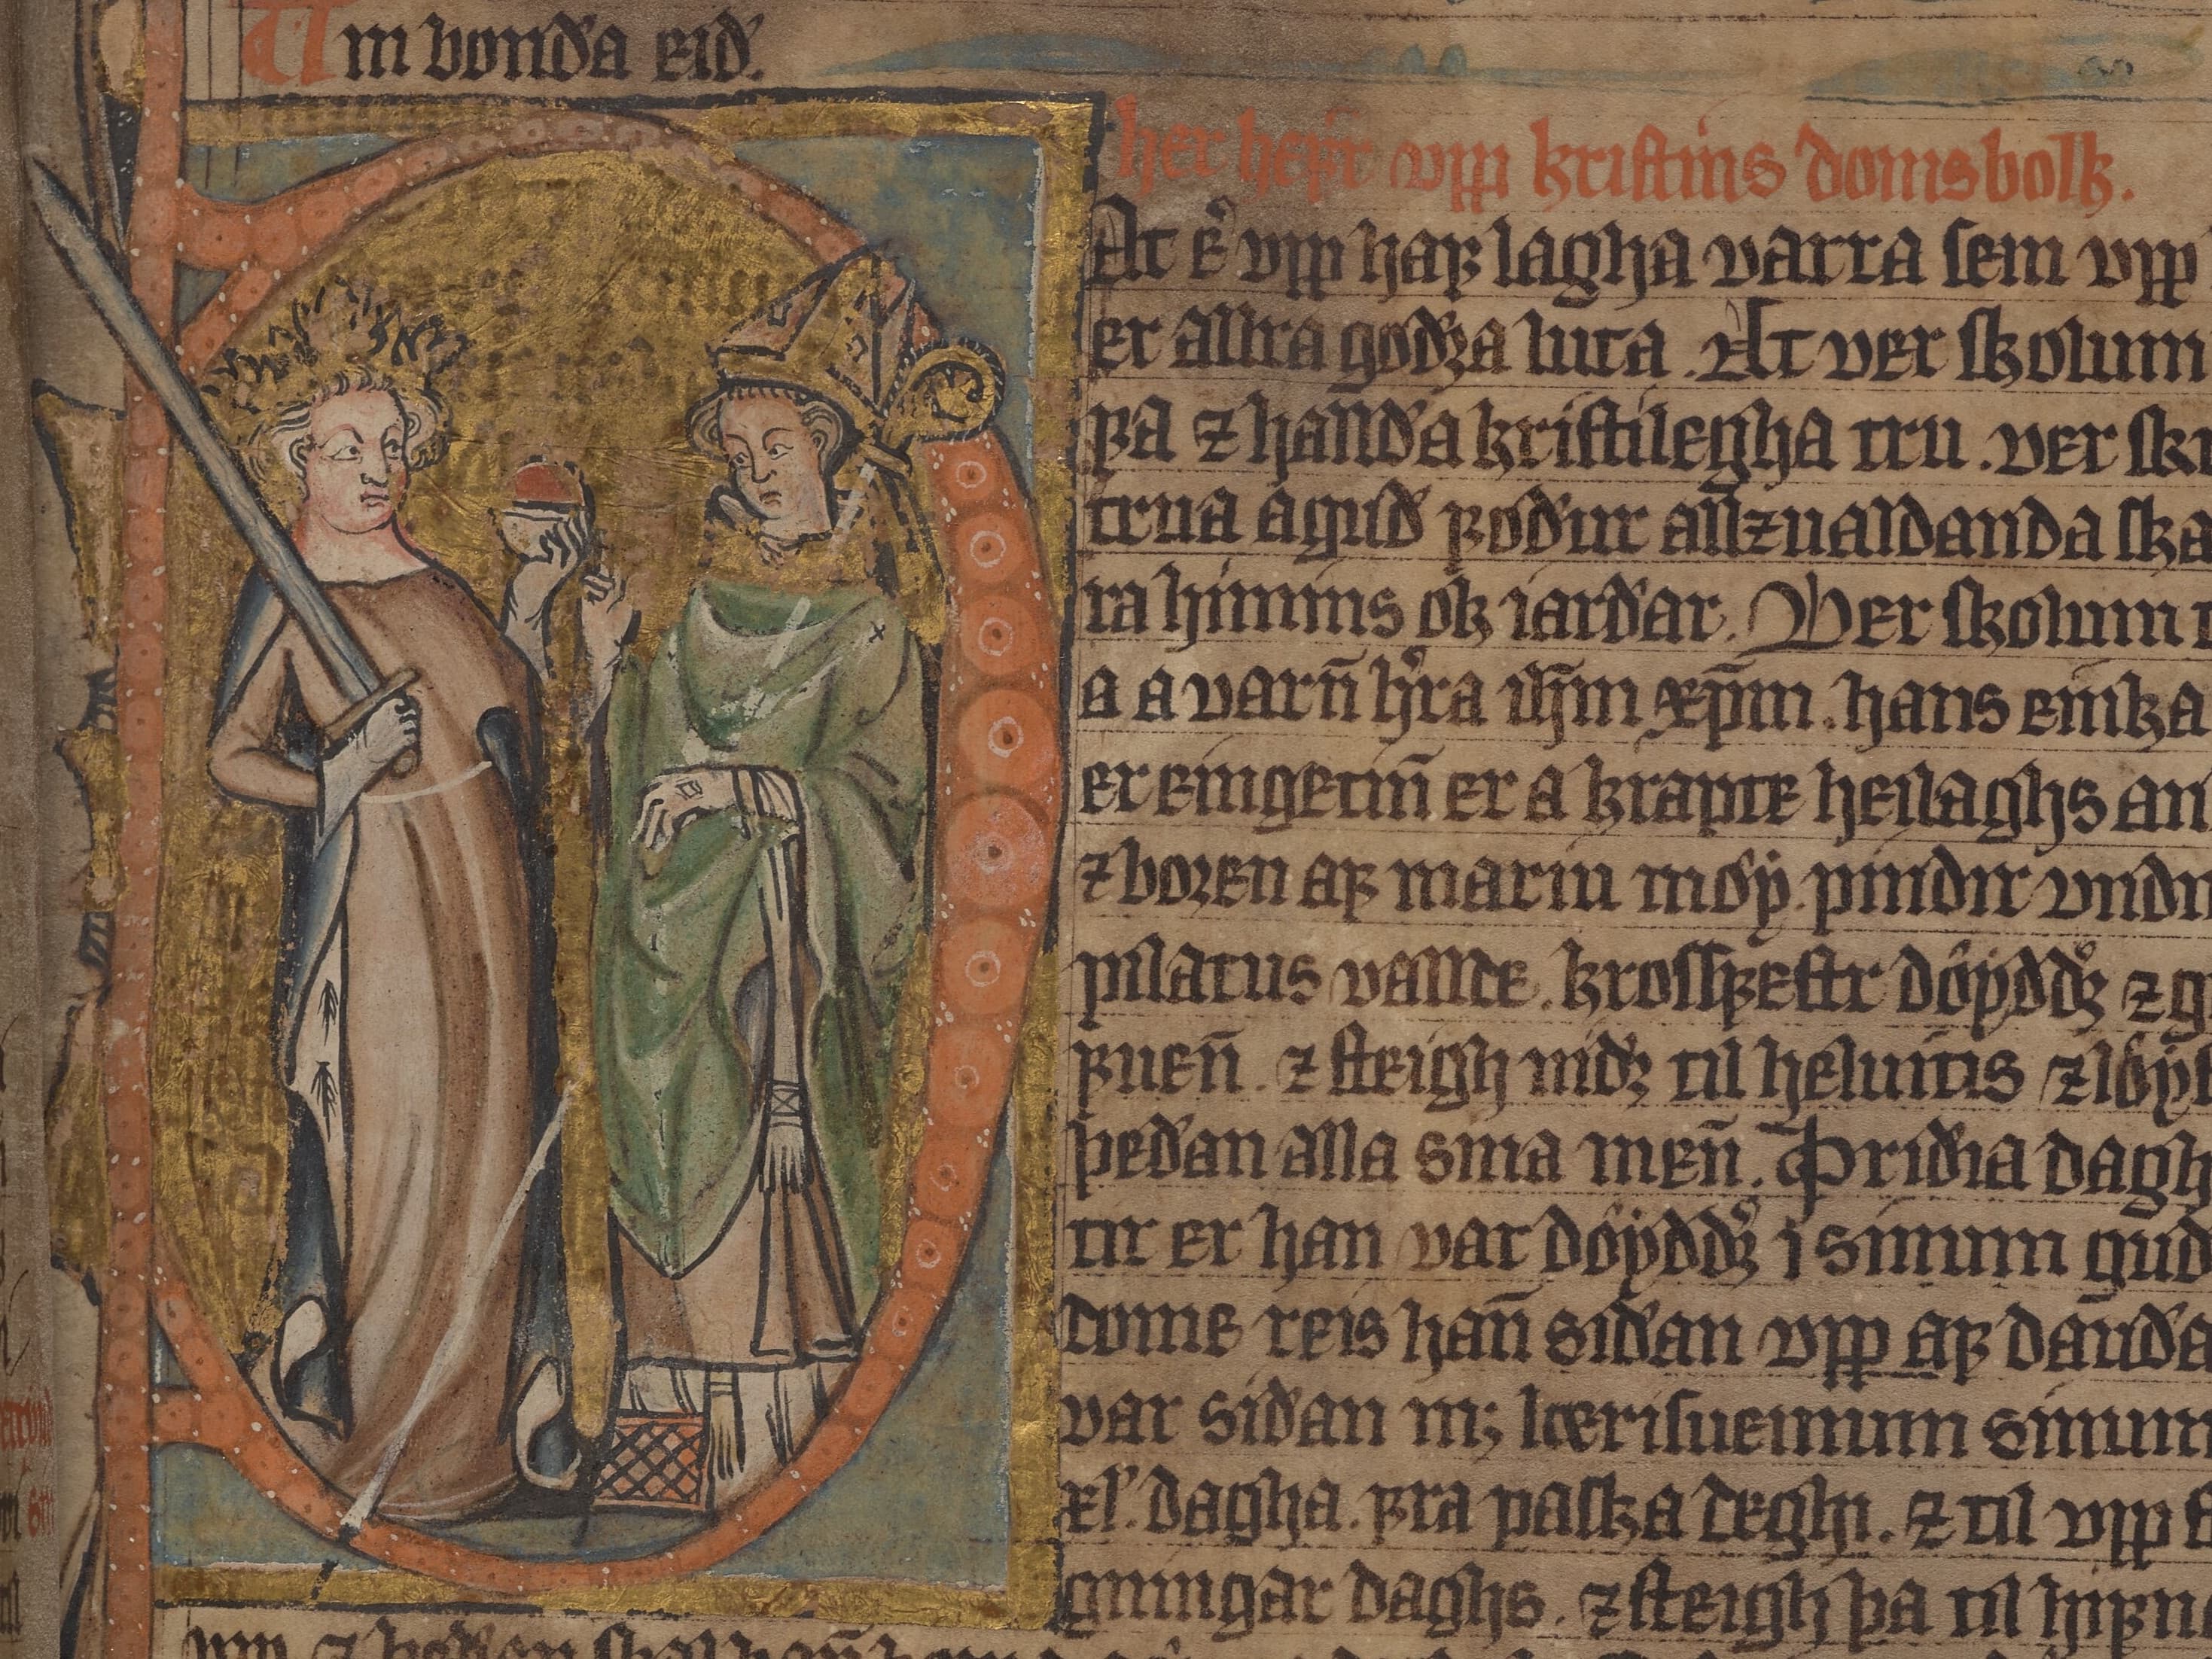 Um bonda eið.
her hefr vpp kristins domsbolk.
Þat er vpp haf lagha varra sem vpp
er allra goðra luta. At ver skolum
fa ⁊ hallda kristilegha tru. ver sku
trua a guð foður allzualdanda ska
ra himins ok iarðar. Ver skolum
a a varn̄ hr̄a ih̄m xp̄m. hans einka
er eingetin̄ er a krapte heilaghs an
⁊ boren af mariu møy. pindir vndir
pilatus vallde. krossfestr døyddr ⁊ g
fuen̄. ⁊ steigh niðr til heluitis ⁊ løys
þeðan alla sina men̄. Þriðia dagh
tir er han var døyddr i sinum guð
dome reis han̄ siðan vpp af dauða
var siðan m; lærisueinum sinum
xl. dagha. fra paska deghi. ⁊ til vpp s
gningar daghs. ⁊ steigh þa til himn